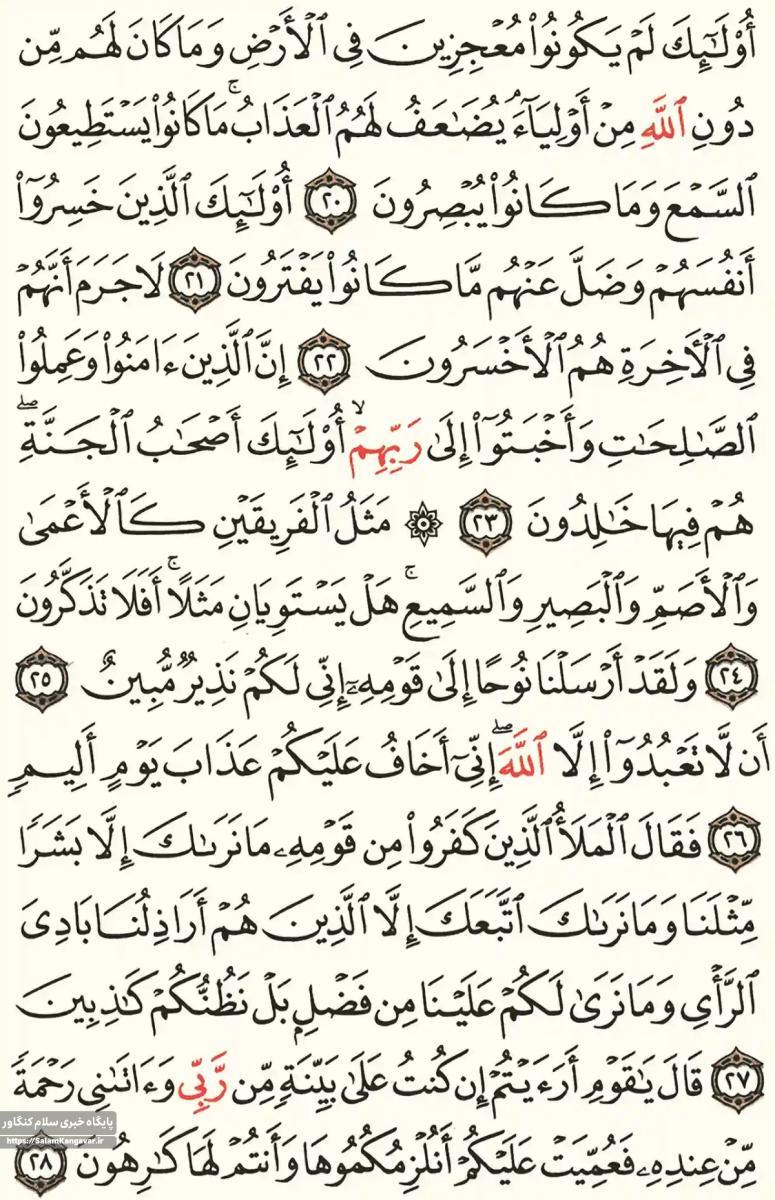 أُوْلَـٰٓئِكَ لَمۡ يَكُونُواْ مُعۡجِزِينَ فِى ٱلۡأَرۡضِ وَمَا كَانَ لَهُم مِّن
دُونِ ٱللَّهِ مِنۡ أَوۡلِيَآءَۘ يُضَٰعَفُ لَهُمُ ٱلۡعَذَابُۚ مَا كَانُواْ يَسۡتَطِيعُونَ
ٱلسَّمۡعَ وَمَا كَانُواْ يُبۡصِرُونَ ٢٠ أُوْلَـٰٓئِكَ ٱلَّذِينَ خَسِرُوٓاْ
أَنفُسَهُمۡ وَضَلَّ عَنۡهُم مَّا كَانُواْ يَفۡتَرُونَ ٢١ لَا جَرَمَ أَنَّهُمۡ
فِى ٱلۡأَخِرَةِ هُمُ ٱلۡأَخۡسَرُونَ ٢٢ إِنَّ ٱلَّذِينَ ءَامَنُواْ وَعَمِلُواْ
ٱلصَّـٰلِحَٰتِ وَأَخۡبَتُوٓاْ إِلَىٰ رَبِّهِمۡۙ أُوْلَـٰٓئِكَ أَصۡحَٰبُ ٱلۡجَنَّةِۖ
هُمۡ فِيهَا خَٰلِدُونَ ٢٣ ۞ مَثَلُ ٱلۡفَرِيقَيۡنِ كَٱلۡأَعۡمَىٰ
وَٱلۡأَصَمِّ وَٱلۡبَصِيرِ وَٱلسَّمِيعِۚ هَلۡ يَسۡتَوِيَانِ مَثَلًاۚ أَفَلَا تَذَكَّرُونَ
٢٤ وَلَقَدۡ أَرۡسَلۡنَا نُوحًا إِلَىٰ قَوۡمِهِۦٓ إِنِّى لَكُمۡ نَذِيرٌ مُّبِينٌ ٢٥
أَن لَّا تَعۡبُدُوٓاْ إِلَّا ٱللَّهَۖ إِنِّىٓ أَخَافُ عَلَيۡكُمۡ عَذَابَ يَوۡمٍ أَلِيمٍ
٢٦ فَقَالَ ٱلۡمَلَأُ ٱلَّذِينَ كَفَرُواْ مِن قَوۡمِهِۦ مَا نَرَىٰكَ إِلَّا بَشَرًا
مِّثۡلَنَا وَمَا نَرَىٰكَ ٱتَّبَعَكَ إِلَّا ٱلَّذِينَ هُمۡ أَرَاذِلُنَا بَادِىَ
ٱلرَّأۡىِ وَمَا نَرَىٰ لَكُمۡ عَلَيۡنَا مِن فَضۡلِۭ بَلۡ نَظُنُّكُمۡ كَٰذِبِينَ
٢٧ قَالَ يَٰقَوۡمِ أَرَءَيۡتُمۡ إِن كُنتُ عَلَىٰ بَيِّنَةٍ مِّن رَّبِّى وَءَاتَىٰنِى رَحۡمَةً
مِّنۡ عِندِهِۦ فَعُمِّيَتۡ عَلَيۡكُمۡ أَنُلۡزِمُكُمُوهَا وَأَنتُمۡ لَهَا كَٰرِهُونَ ٢٨
پایگاه خبری سلام کنگاور
https://SalamKangavar.ir